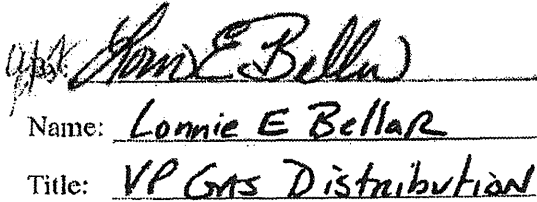 Lonnie E Bellar
Name: Lonnie E Bellar
Title: VP Gas Distribution